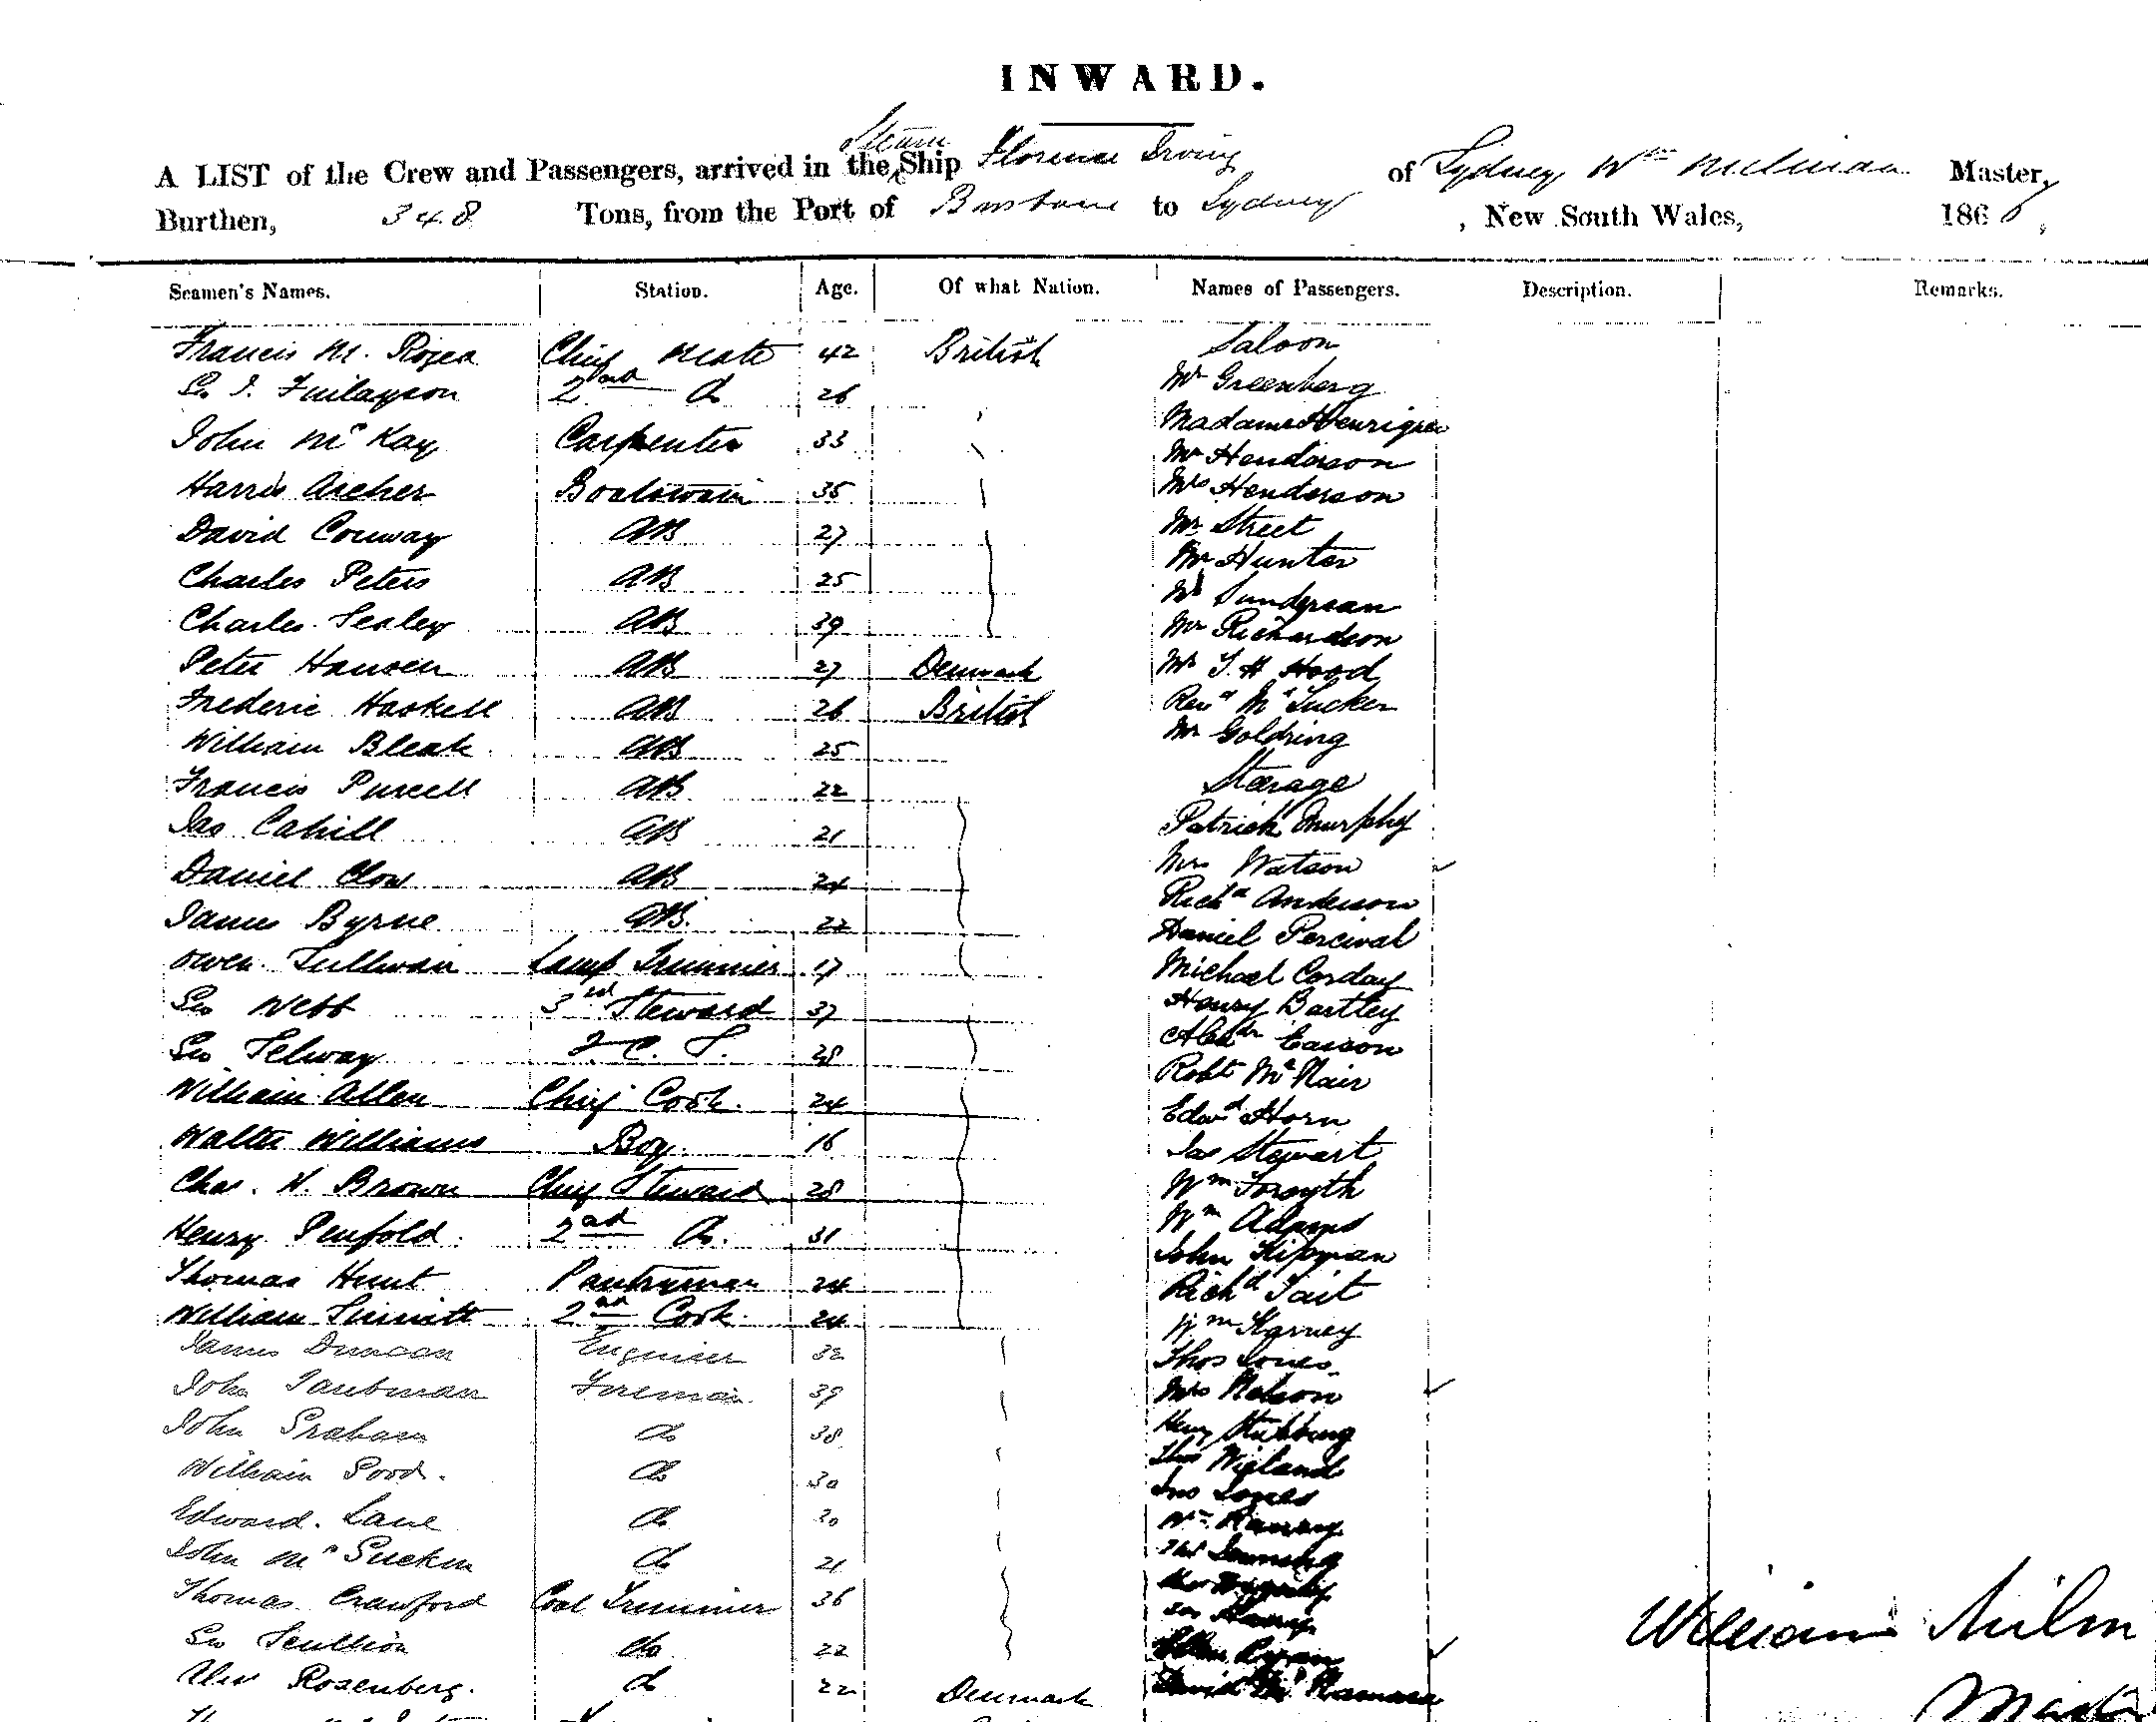 INWARD.
Steam
A LIST of the Crew and Passengers, arrived in the Ship Florence Irving of Sydney Wm Milman Master,
Burthen, 348 Tons, from the Port of Brisbane to Sydney, New South Wales, 186
Seamen's Names. Station. Age. Of what Nation. Names of Passengers. Description. Remarks.
Francis M. Chief Mate 42 British Saloon
Finlayson 2nd Do 26 Mr Greenberg
John McKay Carpenter 33 Madame Henriques
Harris Archer Boatswain 35 Mr Henderson
Mrs Henderson
David Conway AB 27 Mr Street
Charles Peters AB 25 Mr Hunter
Mr Sunderson
Charles Sealey AB 39 Mr Richardson
Peter Hansen AB 27 Denmark Mr T. H Hood
Frederic Haskell AB 26 British Revd Tucker
William Bleak AB 25 Mr Goldring
Francis Purcell AB 22 Steerage
Jas Cahill AB 21 Patrick Murphy
Daniel Clow AB 24 Mrs Watson
Richd Anderson
James Byrne AB. 22 Daniel Percival
Owen Sullivan Lamp Trimmer 17 Michael Corday
Geo Webb 3rd Steward 37 Henry Bartley
Geo Selway F. C. S. 28 Easson
Robt McNair
William Allen Chief Cook. 24 Edwd Horn
Walter Williams Boy. 16 Jas Stewart
Chas. H. Brown Chief Steward 28 Wm Forsyth
Henry Penfold. 2nd Do. 31 Wm Adams
John Kipman
Thomas Hunt Pantryman 24 Richd Tait
William 2nd Cook. 24 Wm
James Duncan Engineer 32 Thos Jones.
John Taubman Fireman 39 Mrs Nelson
John Graham Do 38 Henry Stubbing
William Good. Do 30 Wigland
Jno Jones
Edward. Lane Do 30 Wm
John Mc Do 21
Thomas Crawford Coal Trimmer 36
Geo Scullion do 22 Ryan
Rosenberg. do 22 Denmark David McNamara
William Milm